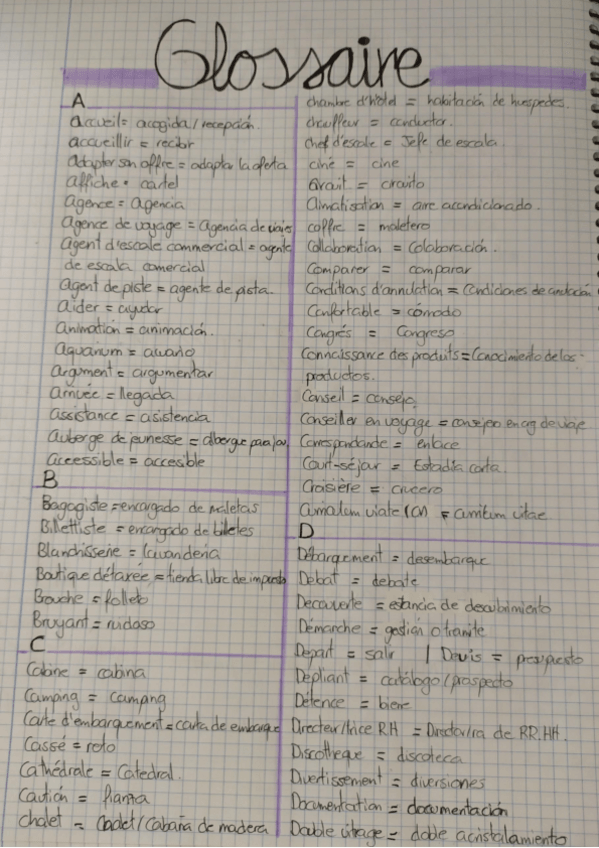 Glossaire
A
Accueil = acogida/recepción.
accueillir = recibir
Adapter son offre = adaptar la oferta
affiche = cartel
Agence = Agencia
Agence de voyage = Agencia de viajes
agent d'escale commercial = agente
de escala comercial
Agent de piste = agente de pista.
aider = ayudar
Animation = animación.
Aquarium = acuario
Argument = argumentar
Arrivée = llegada
assistance = asistencia
Auberge de jeunesse = albergue para jov
Accessible = accesible
B
Bagagiste = encargado de maletas
Billettiste = encargado de billetes
Blanchisserie = lavandería
Boutique détaxée = tienda libre de impuesto
Brouche = folleto
Bruyant = ruidoso
C
Cabine = cabina
Campang = campang
Carte d'embarquement = carta de embarque
Cassé = roto
Cathédrale = Catedral.
Caution = fianza
chalet = chalet/Cabaña de madera
chambre d'hôtel = habitación de huespedes.
chauffeur = conductor.
Chef d'escale = Jefe de escala.
ciné = cine
Circuit = circuito
Climatisation = aire acondicionado.
coffre = maletero
Collaboration = Colaboración.
Comparer = comparar
Conditions d'annulation = Condiciones de anulación
Confortable = cómodo
Congrés = Congreso
Connaissance des produits = Conocimiento de los
productos.
Conseil = consejo
Conseiller en voyage = consejero en ag de viaje
Correspondande = enlace
Court-séjour = Estadía corta.
Croisière = crucero
= curriculum vitae
D
Débarquement = desembarque
Debat = debate
Decouverte = estancia de descubrimiento
Démarche = gestión o tramite
Depart = salir | Devis = presupuesto
Dépliant = catálogo/prospecto
Détence =
Directeur/trice RH = Director/ra de RR.HH.
Discotheque = discoteca
Divertissement = diversiones
Documentation = documentación
Double vitrage = doble acristalamiento